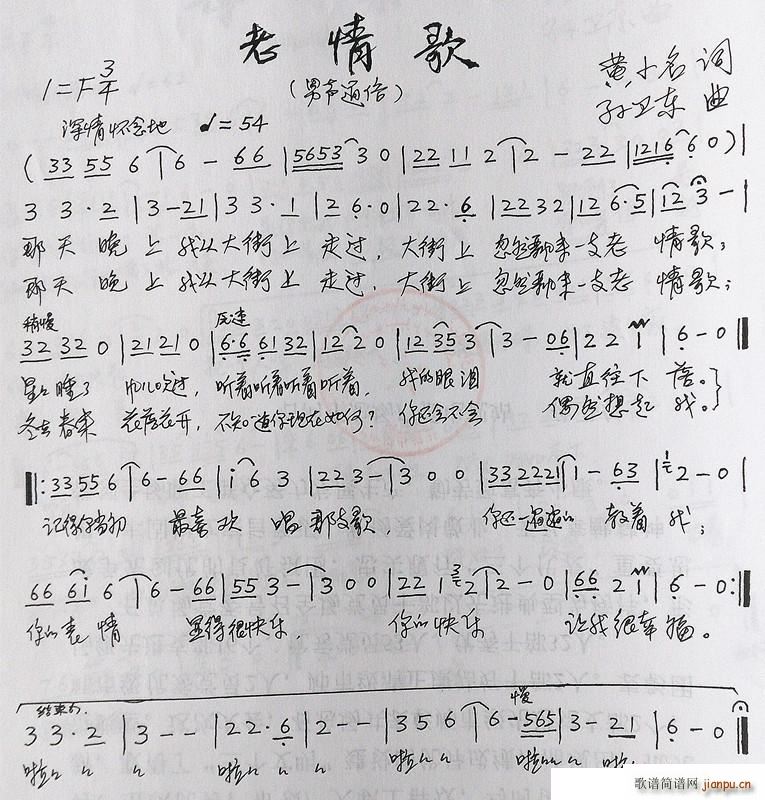 老情歌
1=F 3/4
(男声通俗)
黄小名 词
孙卫东 曲
深情怀念地 ♩=54
(33 55 6 | 6 - 66 | 5653 3 0 | 22 11 2 | 2 - 22 | 1216 6 0) |
3 3· 2 | 3 - 21 | 3 3· 1 | 2 6· 0 | 22· 6 | 22 32 | 12 6·5 | 12 3 - |
那天 晚 上 我从大街上 走过, 大街上 忽然飘来一支老 情歌;
那天 晚 上 我从大街上 走过, 大街上 忽然飘来一支老 情歌;
稍慢 原速
32 32 0 | 21 21 0 | 6·6 61 32 | 12 2 0 | 12 35 3 | 3 - 06 | 2 2 1 | 6 - 0
星星睡了 听着听着听着听着, 我的眼泪 就直往下 落。
冬去春来 花落花开, 不知道你现在如何? 你还会不会 偶然想起 我。
33 55 6 | 6 - 66 | i 6 3 | 22 3 - | 3 0 0 | 33 222 1 | 1 - 63 | 2 - 0 |
记得你当初 最喜欢 唱那支歌, 你还 教着 我;
66 6i 6 | 6 - 66 | 55 3 - | 3 0 0 | 22 1 2 | 2 - 0 | 66 2 1 | 6 - 0 :
你的表情 显得很快乐 你的快乐 让我很幸福。
结束句 慢
3 3· 2 | 3 - - | 2 2· 6 | 2 - - | 3 5 6 | 6 - 565 | 3 - 21 | 6 - 0
啦 啦 啦 啦
歌谱简谱网 jianpu.cn